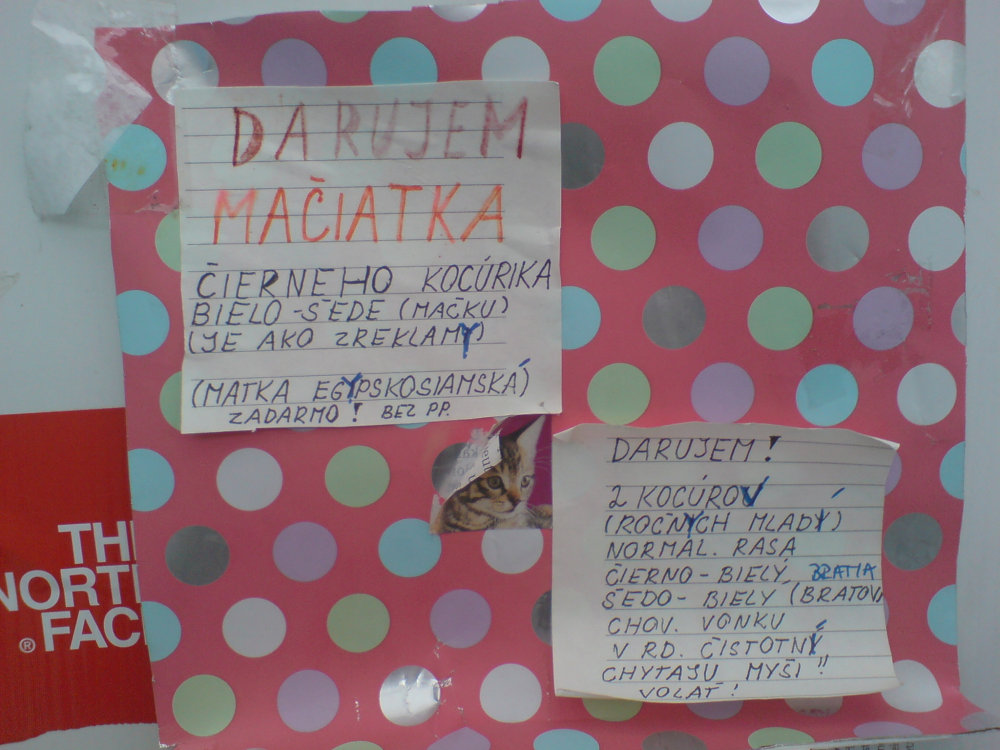 DARUJEM
MAČIATKA
ČIERNEHO KOCÚRIKA
BIELO-ŠEDE (MAČKU)
(JE AKO ZREKLAMY)
(MATKA EGYPSKOSIAMSKÁ)
ZADARMO! BEZ PP.
DARUJEM!
2 KOCÚROV
(ROČNÝCH MLADÝ)
NORMÁL. RASA
ČIERNO-BIELÝ, BRATIA
ŠEDO-BIELY (BRATOV
CHOV. VONKU
V RD. ČISTOTNÝ
CHYTAJU MYŠI!!
VOLAŤ!
THE
NORTH
®FAC